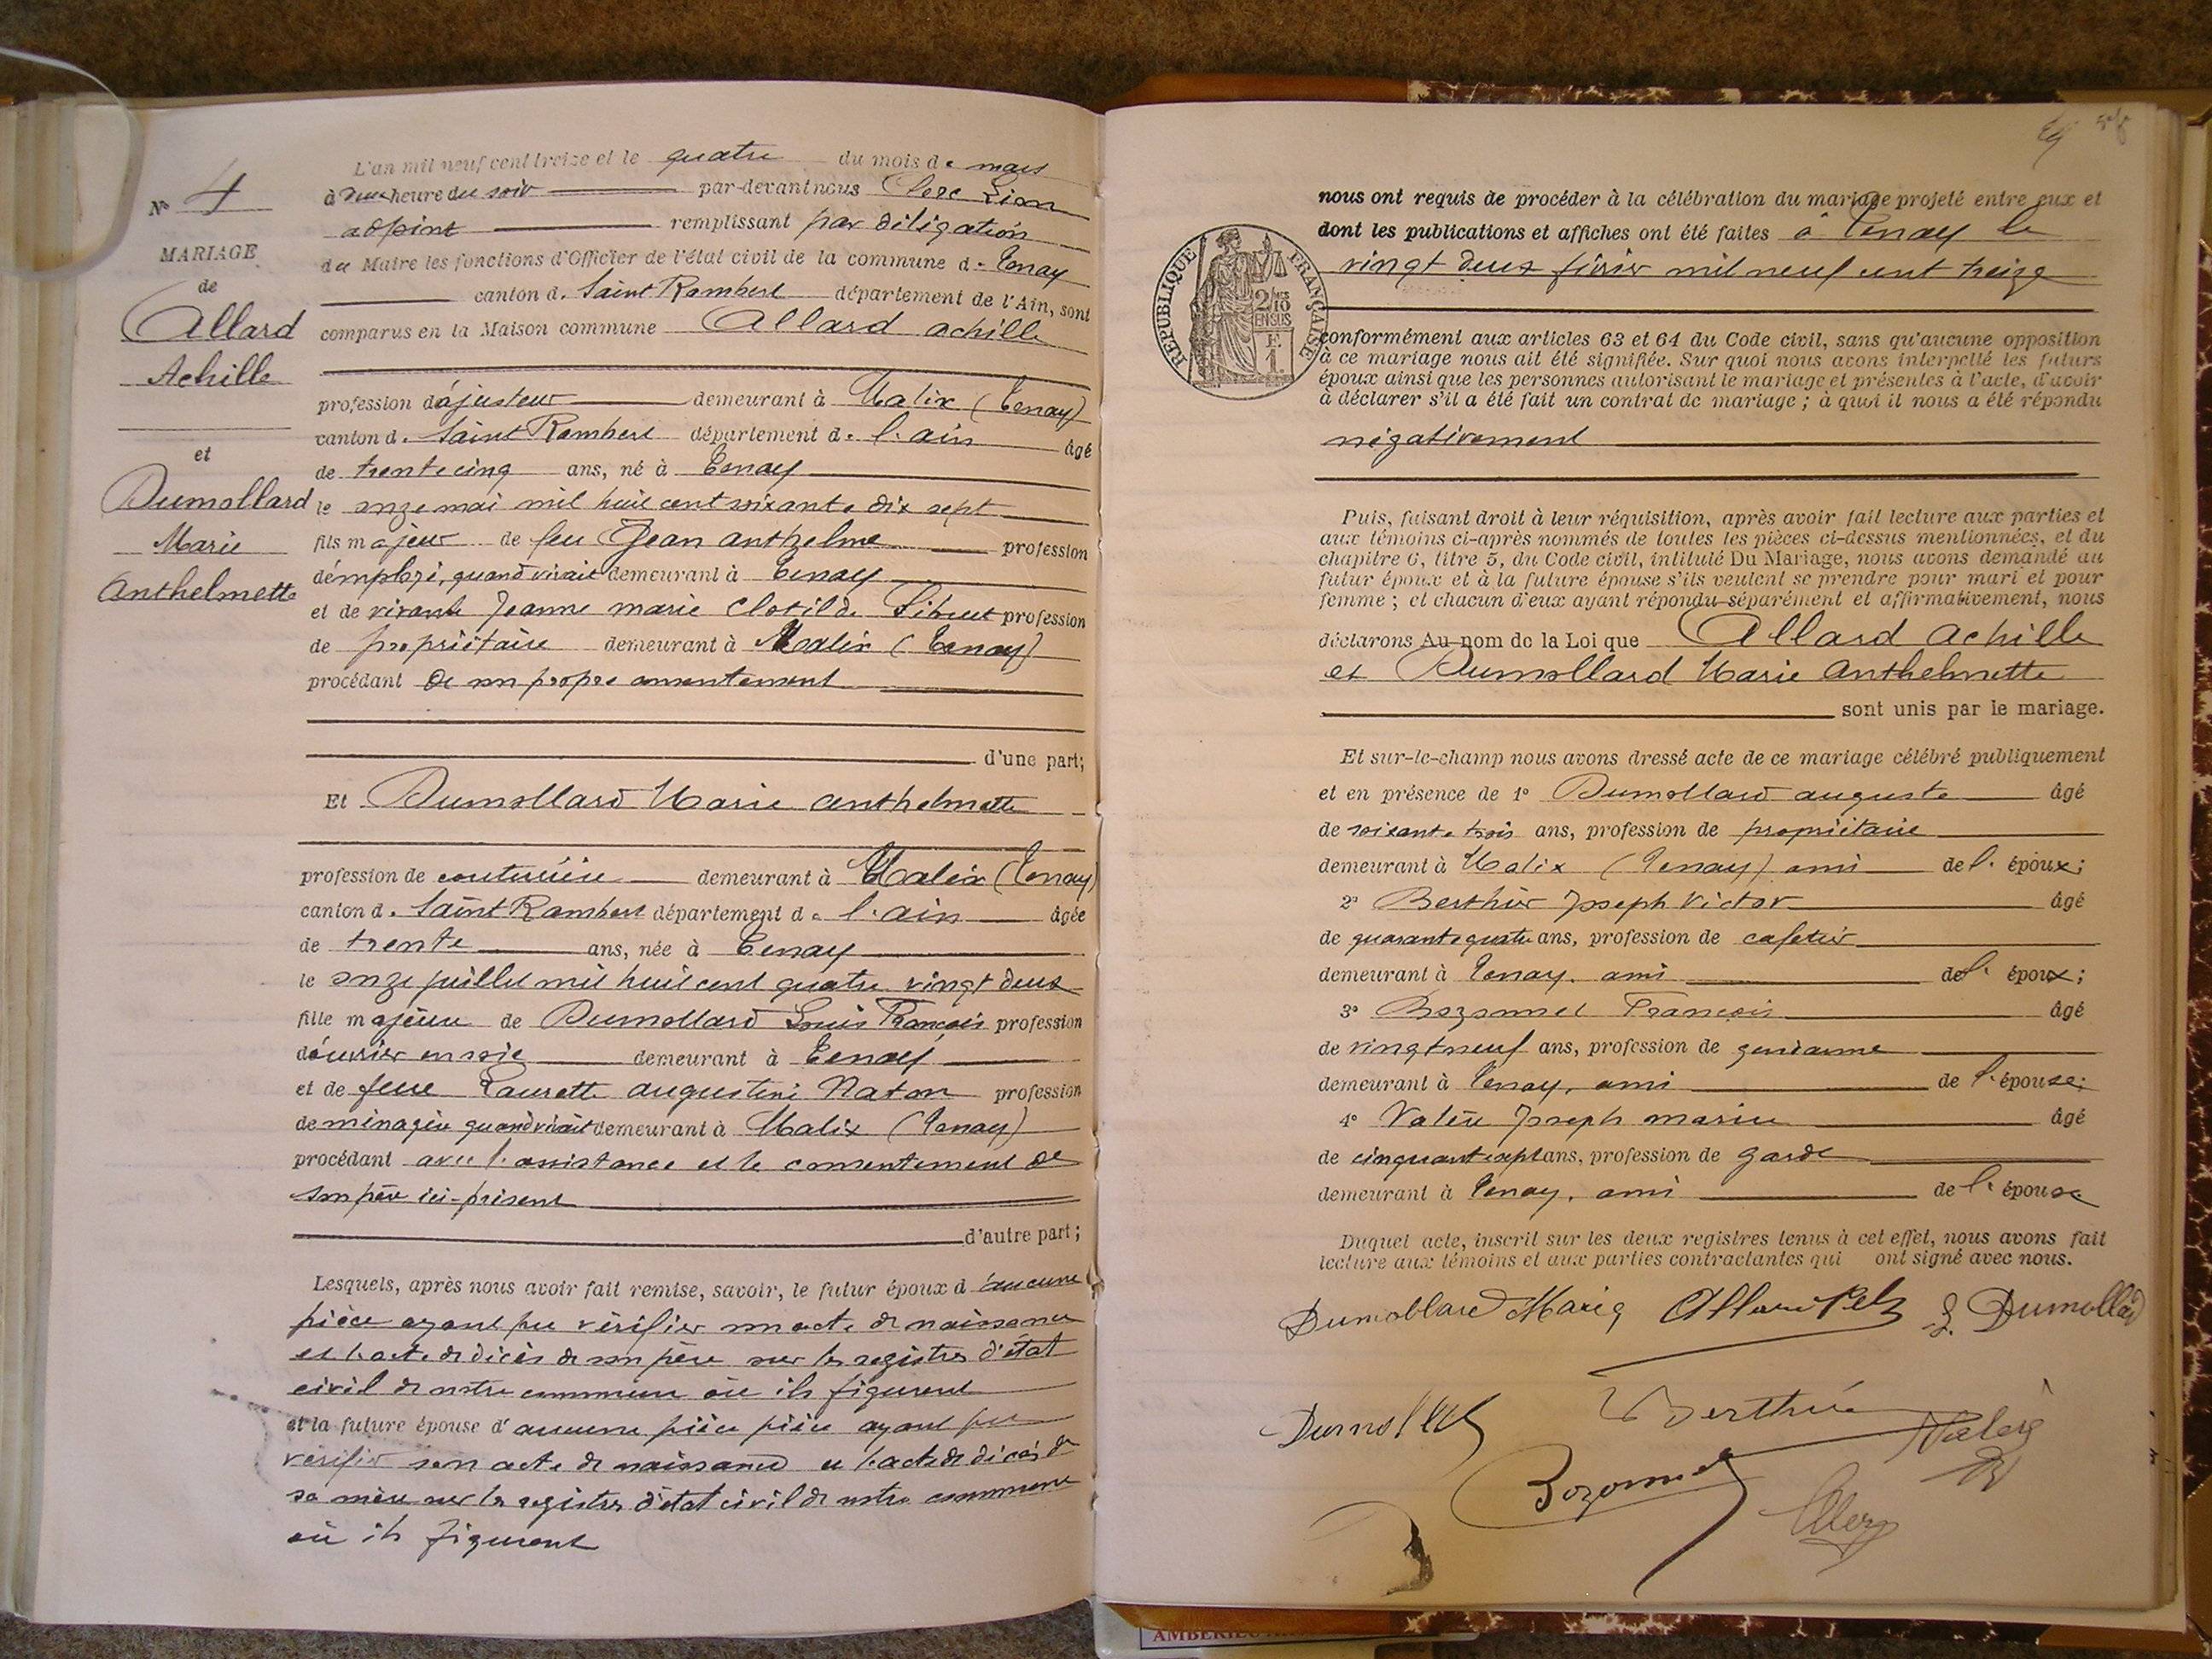 L'an mil neuf cent treize et le quatre du mois de mars
à deux heure du soir par-devant nous Clerc Léon
adjoint remplissant par délégation
du Maire les fonctions d'Officier de l'état civil de la commune de Tenay
canton de Saint Rambert département de l'Ain, sont
comparus en la Maison commune Allard achille
profession d'ajusteur demeurant à Malix (Tenay)
canton de Saint Rambert département de l'ain âgé
de trente cinq ans, né à Tenay
le onze mai mil huit cent soixante dix sept
fils majeur de feu Jean anthelme profession
d'employé, quand vivait demeurant à Tenay
et de vivante Jeanne marie Clotilde profession
de propriétaire demeurant à Malix (Tenay)
procédant de son propre consentement
d'une part;
Et Dumollard Marie anthelmette
profession de couturière demeurant à Malix (Tenay)
canton de Saint Rambert département de l'ain âgée
de trente ans, née à Tenay
le onze juillet mil huit cent quatre vingt deux
fille majeure de Dumollard Louis François profession
d'ouvrier en soie demeurant à Tenay
et de feue Laurette augustine Naton profession
de ménagère quand vivait demeurant à Malix (Tenay)
procédant avec l'assistance et le consentement de
son père ici-présent
d'autre part;
Lesquels, après nous avoir fait remise, savoir, le futur époux d'aucune
pièce ayant pu vérifier son acte de naissance
et l'acte de décès de son père sur les registres d'état
civil de notre commune où ils figurent
et la future épouse d'aucune pièce pièce ayant pu
vérifier son acte de naissance et l'acte de décès de
sa mère sur les registres d'état civil de notre commune
où ils figurent
N° 4
MARIAGE
de
Allard
Achille
et
Dumollard
Marie
Anthelmette
nous ont requis de procéder à la célébration du mariage projeté entre eux et
dont les publications et affiches ont été faites à Tenay le
vingt deux février mil neuf cent treize
RÉPUBLIQUE FRANÇAISE
2/10
EN SUS
F.
1.
conformément aux articles 63 et 64 du Code civil, sans qu'aucune opposition
à ce mariage nous ait été signifiée. Sur quoi nous avons interpellé les futurs
époux ainsi que les personnes autorisant le mariage et présentes à l'acte, d'avoir
à déclarer s'il a été fait un contrat de mariage ; à quoi il nous a été répondu
négativement
Puis, faisant droit à leur réquisition, après avoir fait lecture aux parties et
aux témoins ci-après nommés de toutes les pièces ci-dessus mentionnées, et du
chapitre 6, titre 5, du Code civil, intitulé Du Mariage, nous avons demandé au
futur époux et à la future épouse s'ils veulent se prendre pour mari et pour
femme ; et chacun d'eux ayant répondu séparément et affirmativement, nous
déclarons Au nom de la Loi que Allard achille
et Dumollard Marie anthelmette
sont unis par le mariage.
Et sur-le-champ nous avons dressé acte de ce mariage célébré publiquement
et en présence de 1° Dumollard auguste âgé
de soixante trois ans, profession de propriétaire
demeurant à Malix (Tenay) ami de l'époux;
2° Berthier Joseph Victor âgé
de quarante quatre ans, profession de cafetier
demeurant à Tenay, ami de l'époux;
3° Bozonnet François âgé
de vingt neuf ans, profession de gendarme
demeurant à Tenay, ami de l'épouse;
4° Joseph marie âgé
de cinquante sept ans, profession de garde
demeurant à Tenay, ami de l'épouse
Duquel acte, inscrit sur les deux registres tenus à cet effet, nous avons fait
lecture aux témoins et aux parties contractantes qui ont signé avec nous.
Dumollard Marie L. Dumollard
Berthier
Bozonnet
Clerc